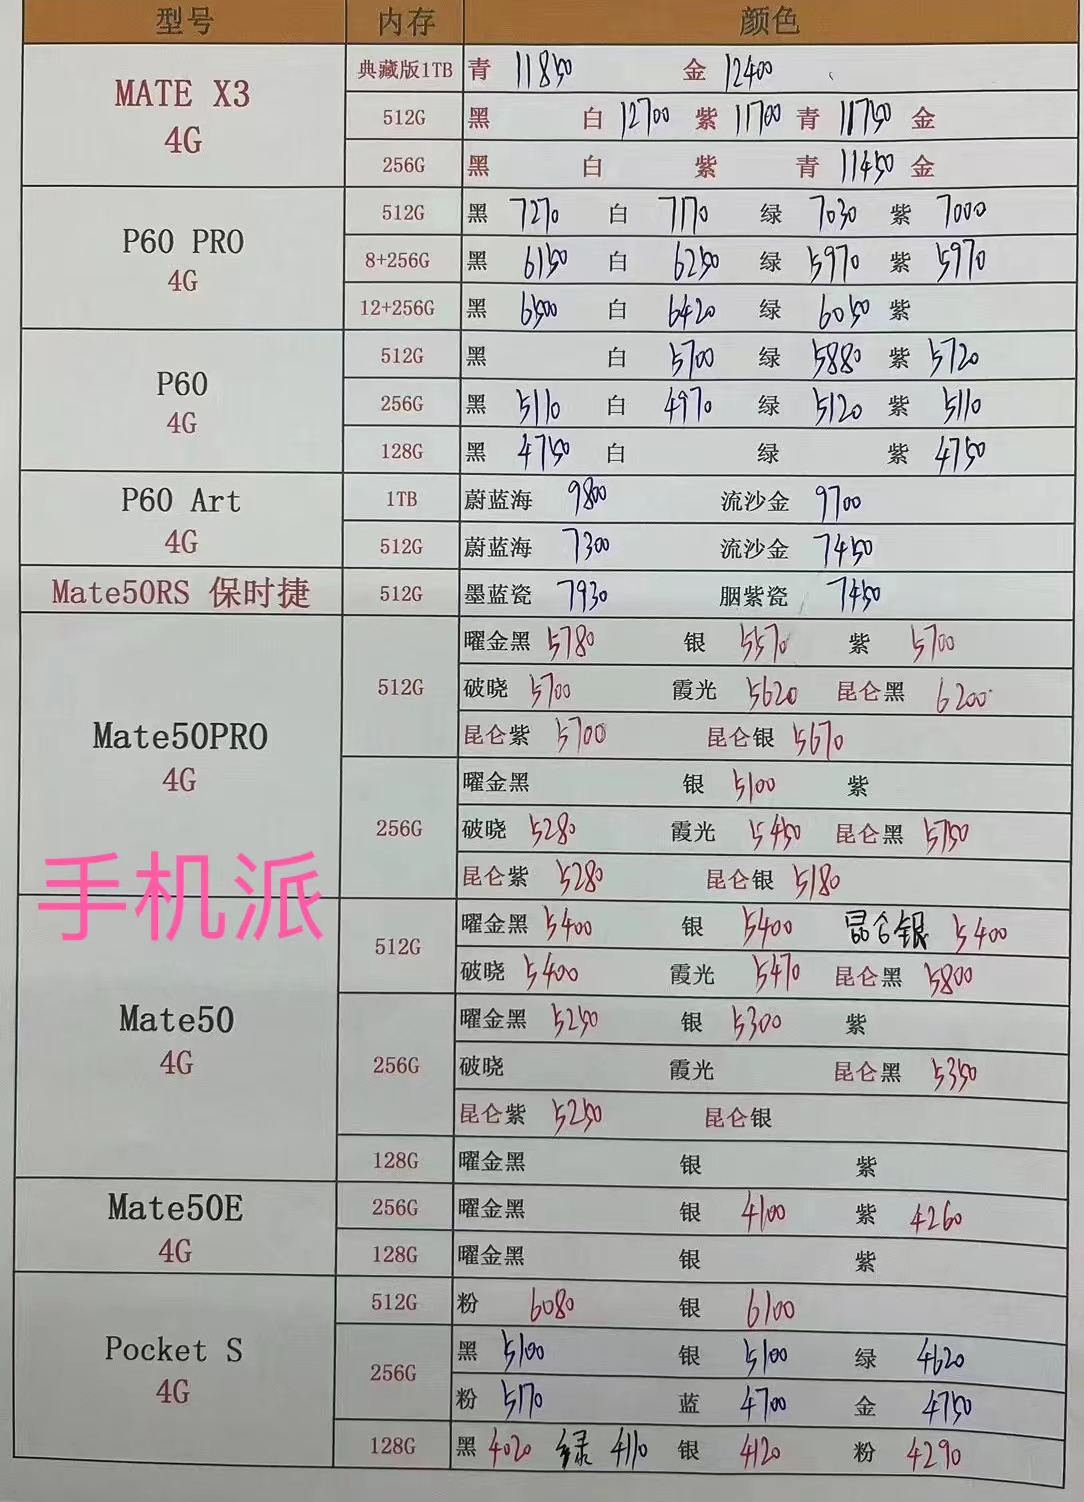 型号 内存 颜色
MATE X3
4G
典藏版1TB 青 11850 金 12400
512G 黑 白 12700 紫 11700 青 11750 金
256G 黑 白 紫 青 11450 金
P60 PRO
4G
512G 黑 7270 白 7170 绿 7030 紫 7000
8+256G 黑 6150 白 6250 绿 5970 紫 5970
12+256G 黑 6500 白 6420 绿 6050 紫
P60
4G
512G 黑 白 5700 绿 5880 紫 5720
256G 黑 5110 白 4970 绿 5120 紫 5110
128G 黑 4750 白 绿 紫 4750
P60 Art
4G
1TB 蔚蓝海 9800 流沙金 9700
512G 蔚蓝海 7300 流沙金 7450
Mate50RS 保时捷 512G 墨蓝瓷 7930 胭紫瓷 7450
Mate50PRO
4G
512G 曜金黑 5780 银 5570 紫 5700
破晓 5700 霞光 5620 昆仑黑 6200
昆仑紫 5700 昆仑银 5670
256G 曜金黑 银 5100 紫
破晓 5280 霞光 5450 昆仑黑 5750
昆仑紫 5280 昆仑银 5180
手机派
Mate50
4G
512G 曜金黑 5400 银 5400 昆仑银 5400
破晓 5400 霞光 5470 昆仑黑 5800
256G 曜金黑 5250 银 5300 紫
破晓 霞光 昆仑黑 5350
昆仑紫 5250 昆仑银
128G 曜金黑 银 紫
Mate50E
4G
256G 曜金黑 银 4100 紫 4260
128G 曜金黑 银 紫
Pocket S
4G
512G 粉 6080 银 6100
256G 黑 5100 银 5100 绿 4620
粉 5170 蓝 4700 金 4750
128G 黑 4020 绿 4110 银 4120 粉 4290